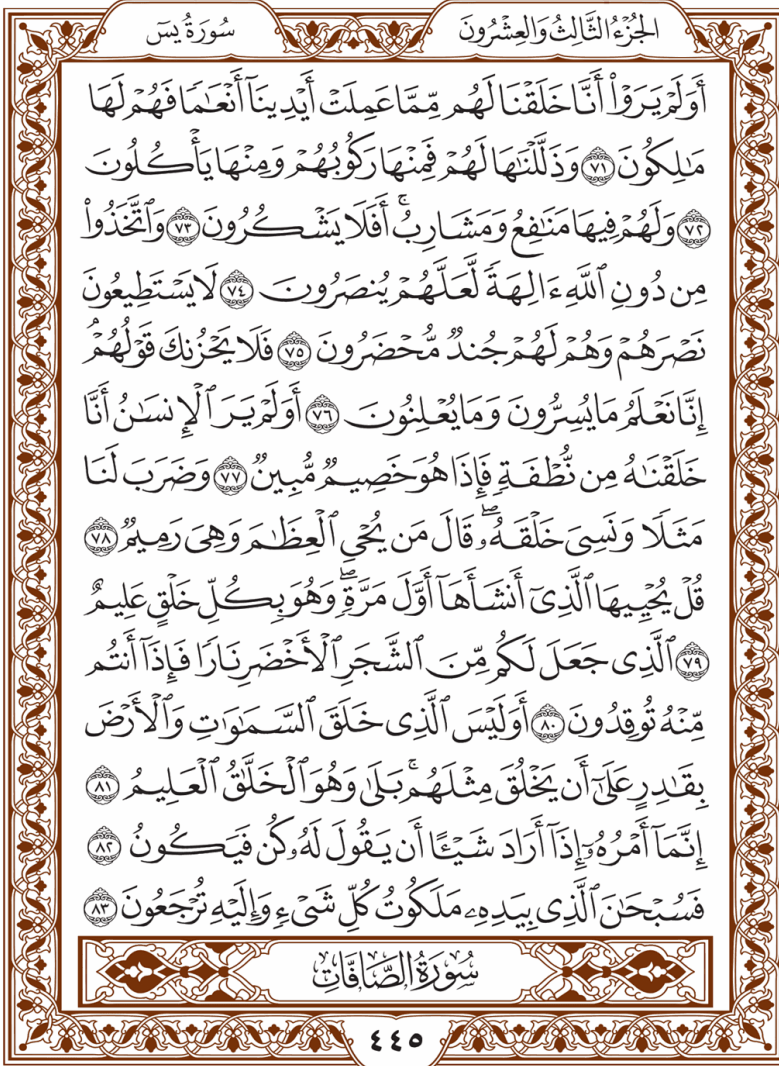 الجُزْءُ الثَّالِثُ وَالعِشْرُونَ
سُورَةُ يسٓ
أَوَلَمْ يَرَوْاْ أَنَّا خَلَقْنَا لَهُم مِّمَّا عَمِلَتْ أَيْدِينَآ أَنْعَٰمٗا فَهُمْ لَهَا
مَٰلِكُونَ ٧١ وَذَلَّلْنَٰهَا لَهُمْ فَمِنْهَا رَكُوبُهُمْ وَمِنْهَا يَأْكُلُونَ
٧٢ وَلَهُمْ فِيهَا مَنَٰفِعُ وَمَشَارِبُۚ أَفَلَا يَشْكُرُونَ ٧٣ وَٱتَّخَذُواْ
مِن دُونِ ٱللَّهِ ءَالِهَةٗ لَّعَلَّهُمْ يُنصَرُونَ ٧٤ لَا يَسْتَطِيعُونَ
نَصْرَهُمْ وَهُمْ لَهُمْ جُندٞ مُّحْضَرُونَ ٧٥ فَلَا يَحْزُنكَ قَوْلُهُمْۘ
إِنَّا نَعْلَمُ مَا يُسِرُّونَ وَمَا يُعْلِنُونَ ٧٦ أَوَلَمْ يَرَ ٱلْإِنسَٰنُ أَنَّا
خَلَقْنَٰهُ مِن نُّطْفَةٖ فَإِذَا هُوَ خَصِيمٞ مُّبِينٞ ٧٧ وَضَرَبَ لَنَا
مَثَلٗا وَنَسِيَ خَلْقَهُۥۖ قَالَ مَن يُحْيِ ٱلْعِظَٰمَ وَهِيَ رَمِيمٞ ٧٨
قُلْ يُحْيِيهَا ٱلَّذِيٓ أَنشَأَهَآ أَوَّلَ مَرَّةٖۖ وَهُوَ بِكُلِّ خَلْقٍ عَلِيمٌ
٧٩ ٱلَّذِي جَعَلَ لَكُم مِّنَ ٱلشَّجَرِ ٱلْأَخْضَرِ نَارٗا فَإِذَآ أَنتُم
مِّنْهُ تُوقِدُونَ ٨٠ أَوَلَيْسَ ٱلَّذِي خَلَقَ ٱلسَّمَٰوَٰتِ وَٱلْأَرْضَ
بِقَٰدِرٍ عَلَىٰٓ أَن يَخْلُقَ مِثْلَهُمۚ بَلَىٰ وَهُوَ ٱلْخَلَّٰقُ ٱلْعَلِيمُ ٨١
إِنَّمَآ أَمْرُهُۥٓ إِذَآ أَرَادَ شَيْـًٔا أَن يَقُولَ لَهُۥ كُن فَيَكُونُ ٨٢
فَسُبْحَٰنَ ٱلَّذِي بِيَدِهِۦ مَلَكُوتُ كُلِّ شَيْءٖ وَإِلَيْهِ تُرْجَعُونَ ٨٣
سُورَةُ الصَّافَّاتِ
٤٤٥